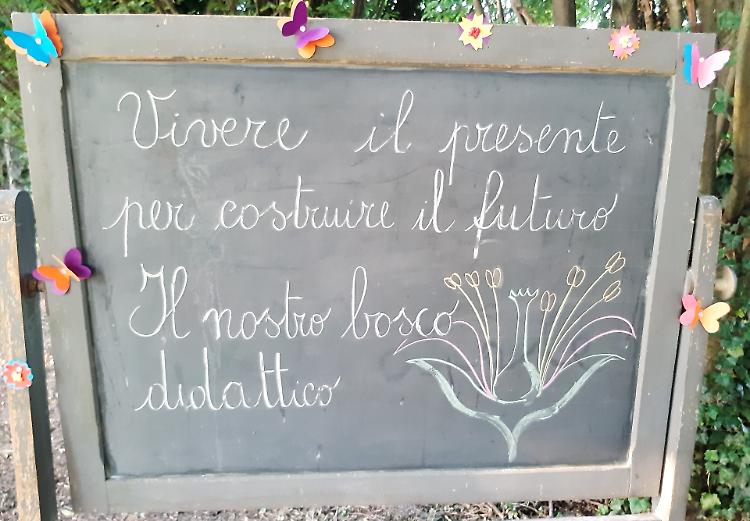 Vivere il presente
per costruire il futuro
Il nostro bosco
didattico